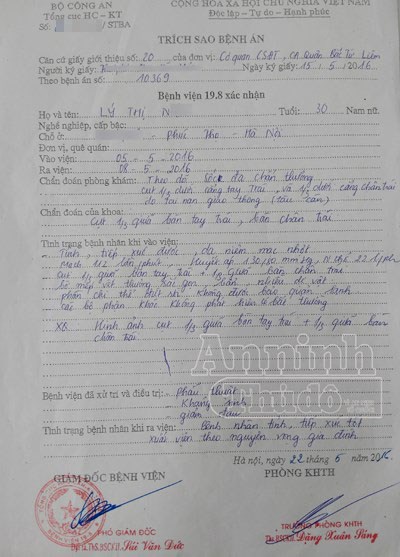 BỘ CÔNG AN
Tổng cục HC - KT
Số: /STBA
CỘNG HÒA XÃ HỘI CHỦ NGHĨA VIỆT NAM
Độc lập - Tự do - Hạnh phúc
TRÍCH SAO BỆNH ÁN
Căn cứ giấy giới thiệu số: 20 của đơn vị: Cơ quan CSĐT, CA Quận Bắc Từ Liêm
Người ký giấy: Ngày ký giấy: 15/5/2016
Theo bệnh án số: 10369
Bệnh viện 19.8 xác nhận
Họ và tên: LÝ THỊ N Tuổi: 30 Nam nữ
Nghề nghiệp, cấp bậc:
Chỗ ở: Phúc Thọ - Hà Nội
Đơn vị, quê quán:
Vào viện: 05-5-2016
Ra viện: 08-5-2016
Chẩn đoán phòng khám: Theo dõi sốc đa chấn thương
cụt 1/3 dưới cẳng tay trái, và 1/3 dưới cẳng chân trái
do tai nạn giao thông (tầu cán)
Chẩn đoán của khoa:
Cụt 1/3 quá bàn tay trái, bàn chân trái
Tình trạng bệnh nhân khi vào viện:
- Tỉnh, tiếp xúc được, da niêm mạc nhợt
- Mạch 112 lần/phút, Huyết áp 130/80 mmHg, N thở 22 l/ph
- Cụt 1/3 quá bàn tay trái + 1/3 quá bàn chân trái
bờ mép vết thương sắc gọn, nhiều dị vật
phần chi thể đứt rời không được bảo quản lạnh
- Các bộ phận khác không phát hiện gì bất thường
XQ: Hình ảnh cụt 1/3 quá bàn tay trái + 1/3 quá bàn
chân trái
Anninh
thudo
Bệnh viện đã xử trí và điều trị: - Phẫu thuật
- Kháng sinh
- giảm đau
Tình trạng bệnh nhân khi ra viện: - Bệnh nhân tỉnh, tiếp xúc tốt
xuất viện theo nguyện vọng gia đình
Hà nội, ngày 22 tháng 5 năm 2016
GIÁM ĐỐC BỆNH VIỆN
PHÒNG KHTH
PHÓ GIÁM ĐỐC
Bùi Văn Đức
TRƯỞNG PHÒNG KHTH
Ths.BSCKII. Đặng Xuân Sáng